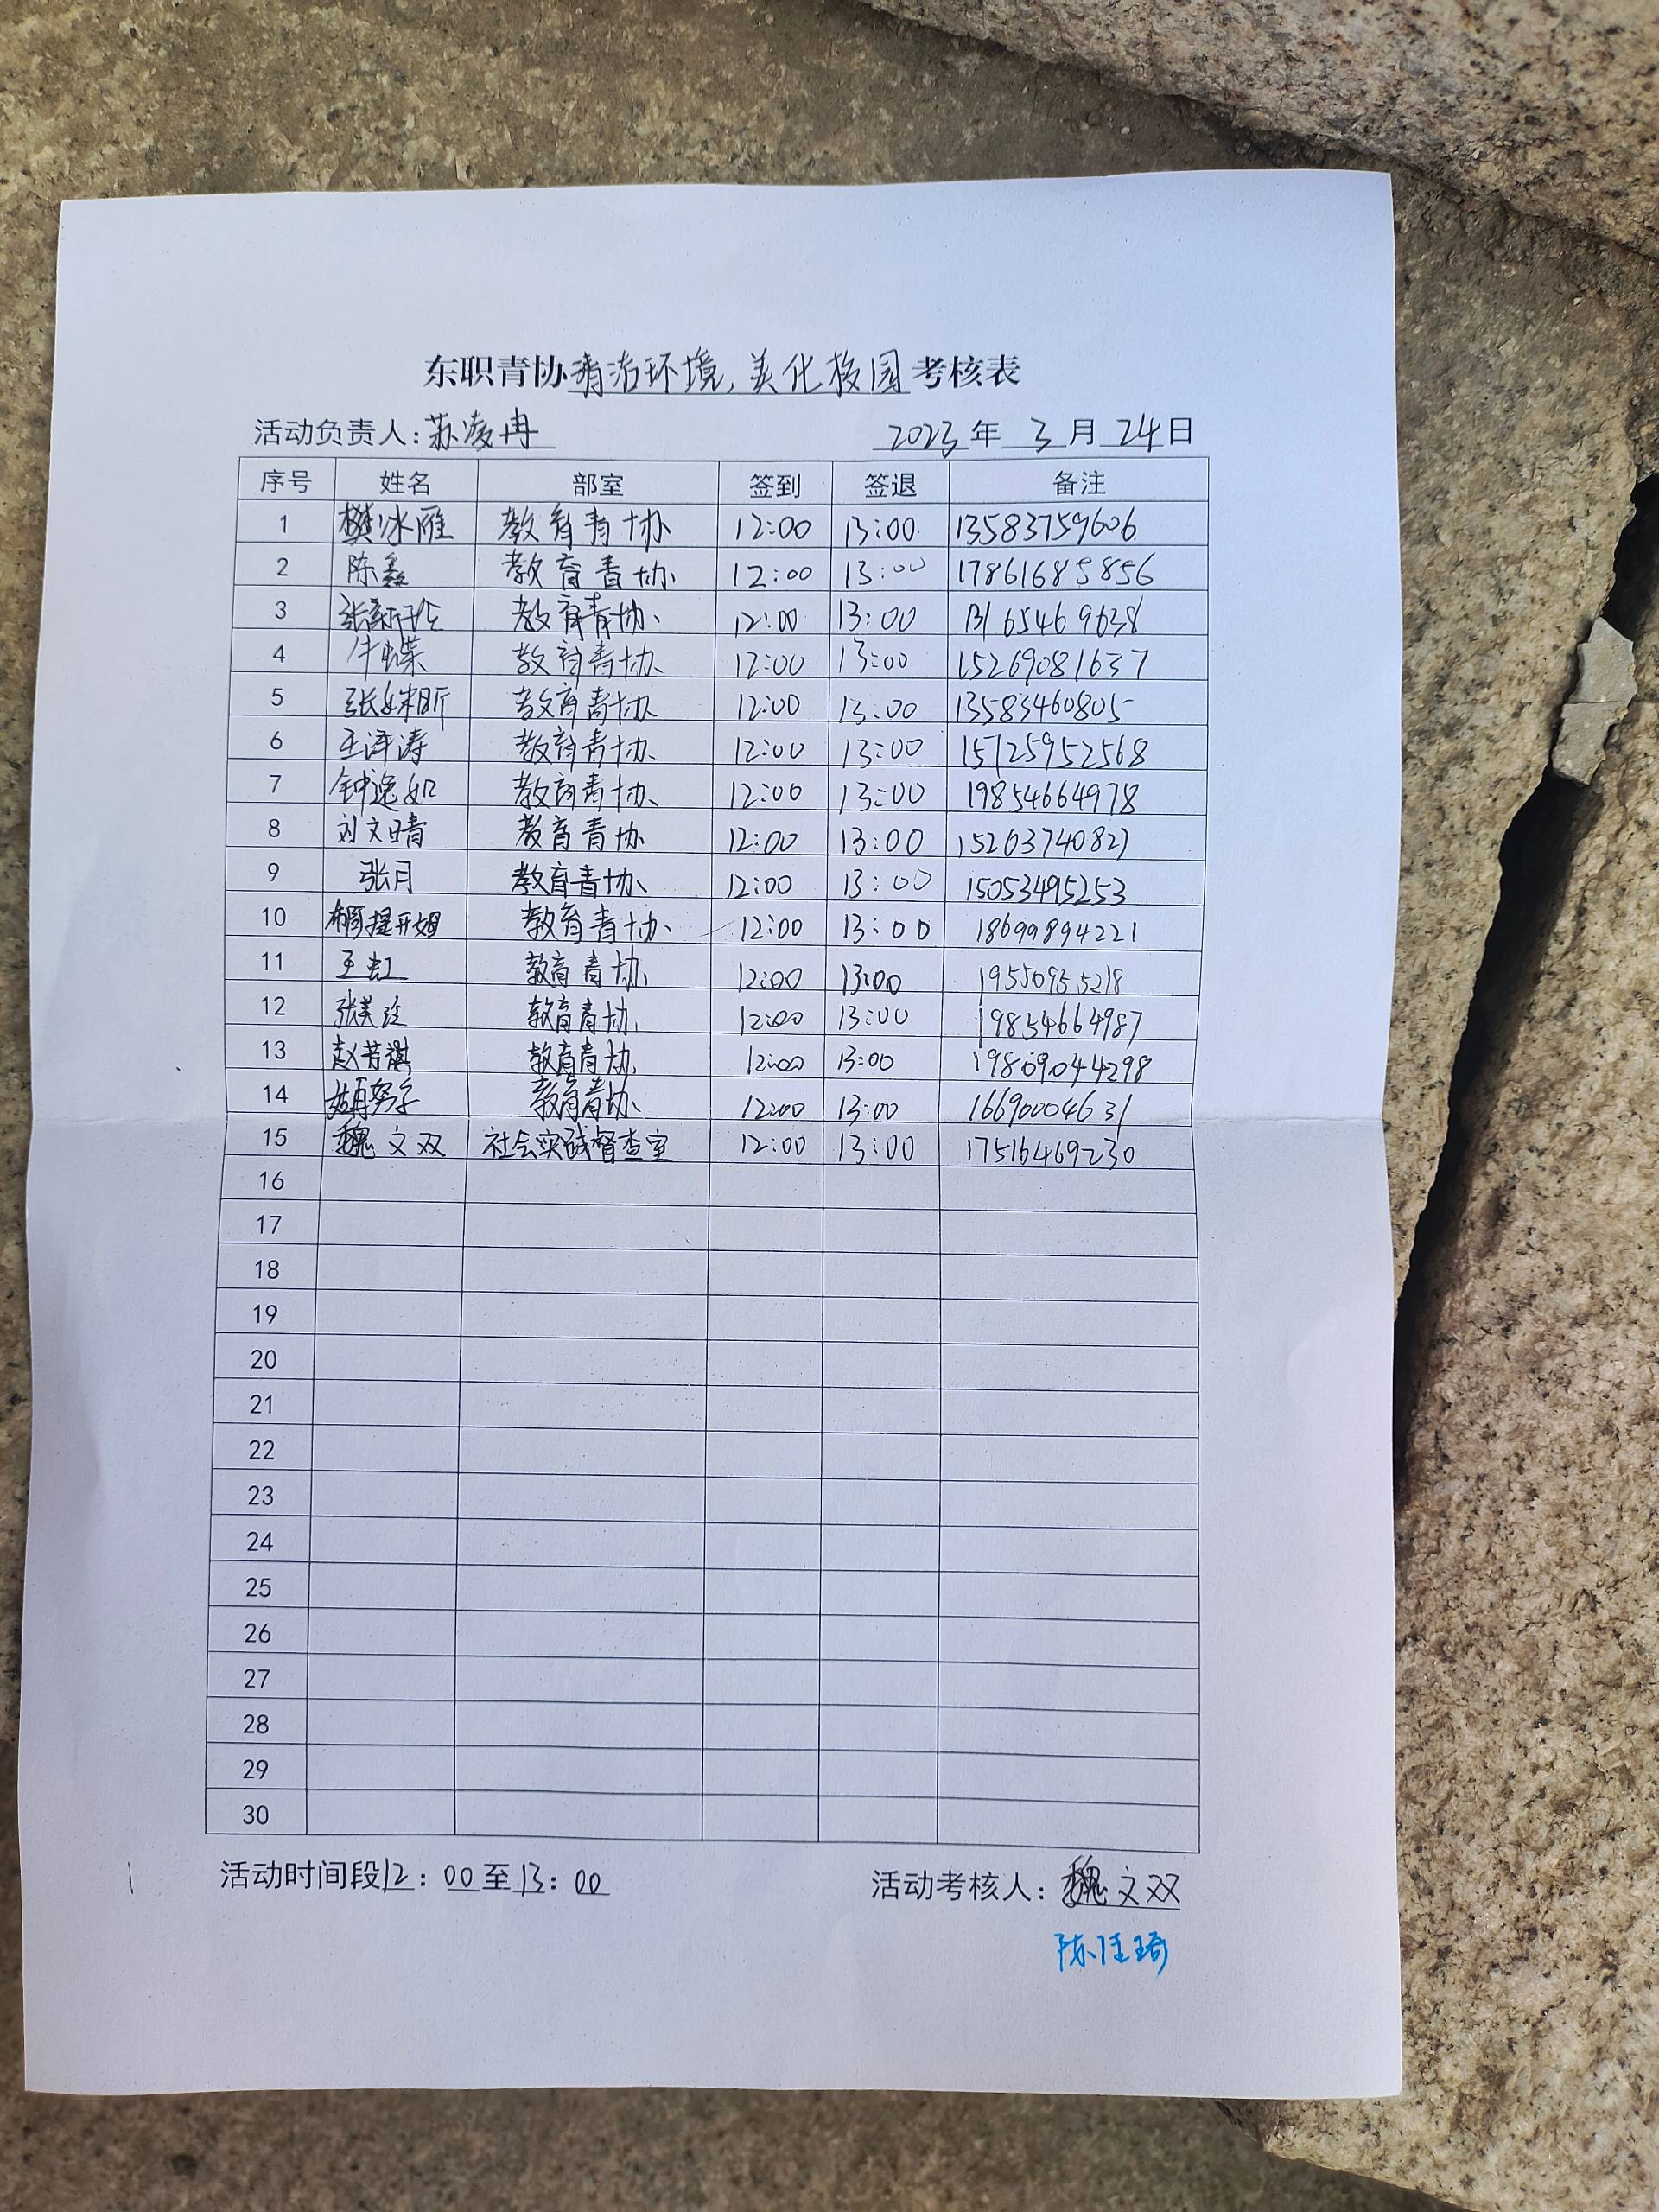 东职青协清洁环境,美化校园考核表
活动负责人:苏凌冉 2023年 3月 24日
序号 姓名 部室 签到 签退 备注
1 樊冰雁 教育青协 12:00 13:00 13583759606
2 陈鑫 教育青协 12:00 13:00 17861685856
3 教育青协 12:00 13:00 13165469638
4 牛蝶 教育青协 12:00 13:00 15269081637
5 张姝昕 教育青协 12:00 13:00 13583460805
6 王泽涛 教育青协 12:00 13:00 15725952568
7 钟逸如 教育青协 12:00 13:00 19854664978
8 刘文晴 教育青协 12:00 13:00 15263740827
9 张月 教育青协 12:00 13:00 15053495253
10 教育青协 12:00 13:00 18699894221
11 王虹 教育青协 12:00 13:00 19550955218
12 张美玲 教育青协 12:00 13:00 19854664987
13 赵芳祺 教育青协 12:00 13:00 19869044298
14 教育青协 12:00 13:00 16690004631
15 魏文双 社会实践督查室 12:00 13:00 17516469230
16
17
18
19
20
21
22
23
24
25
26
27
28
29
30
活动时间段12:00至13:00 活动考核人:魏文双
陈佳琦